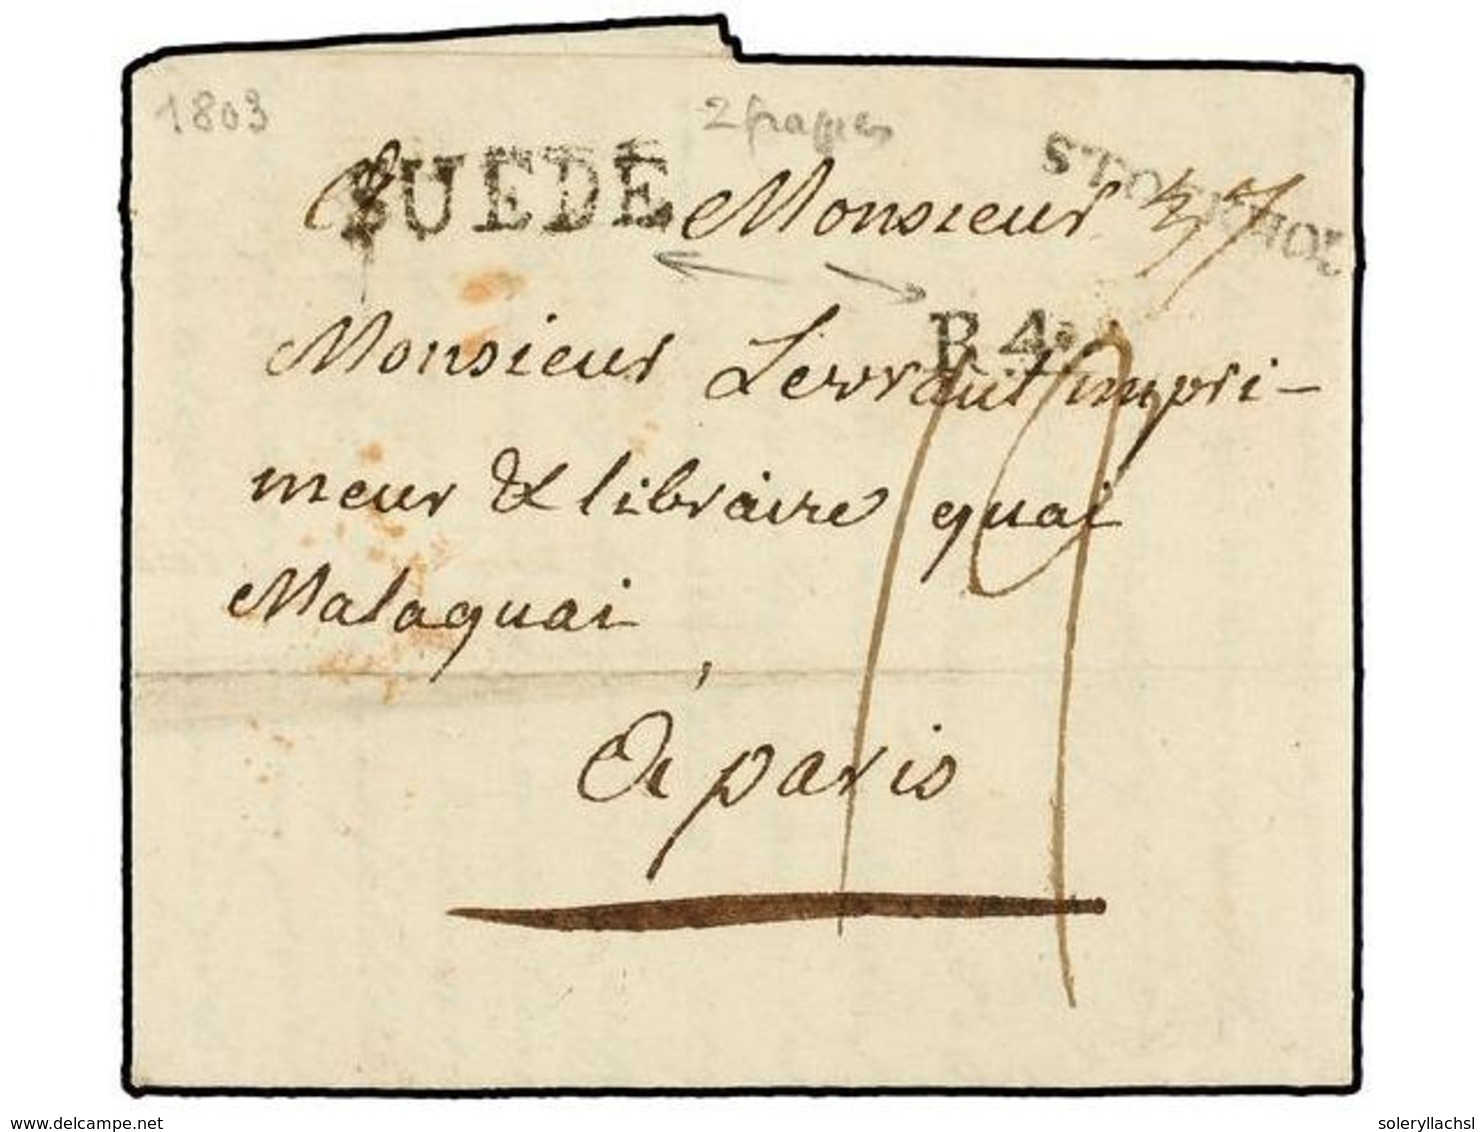 1803
2 frappes
SUEDE
STOCKHOL
A Monsieur 37
R.4.
Monsieur Levrault impri-
meur & libraire quai
Malaquai
19
à paris
www.delcampe.net
soleryllachsl